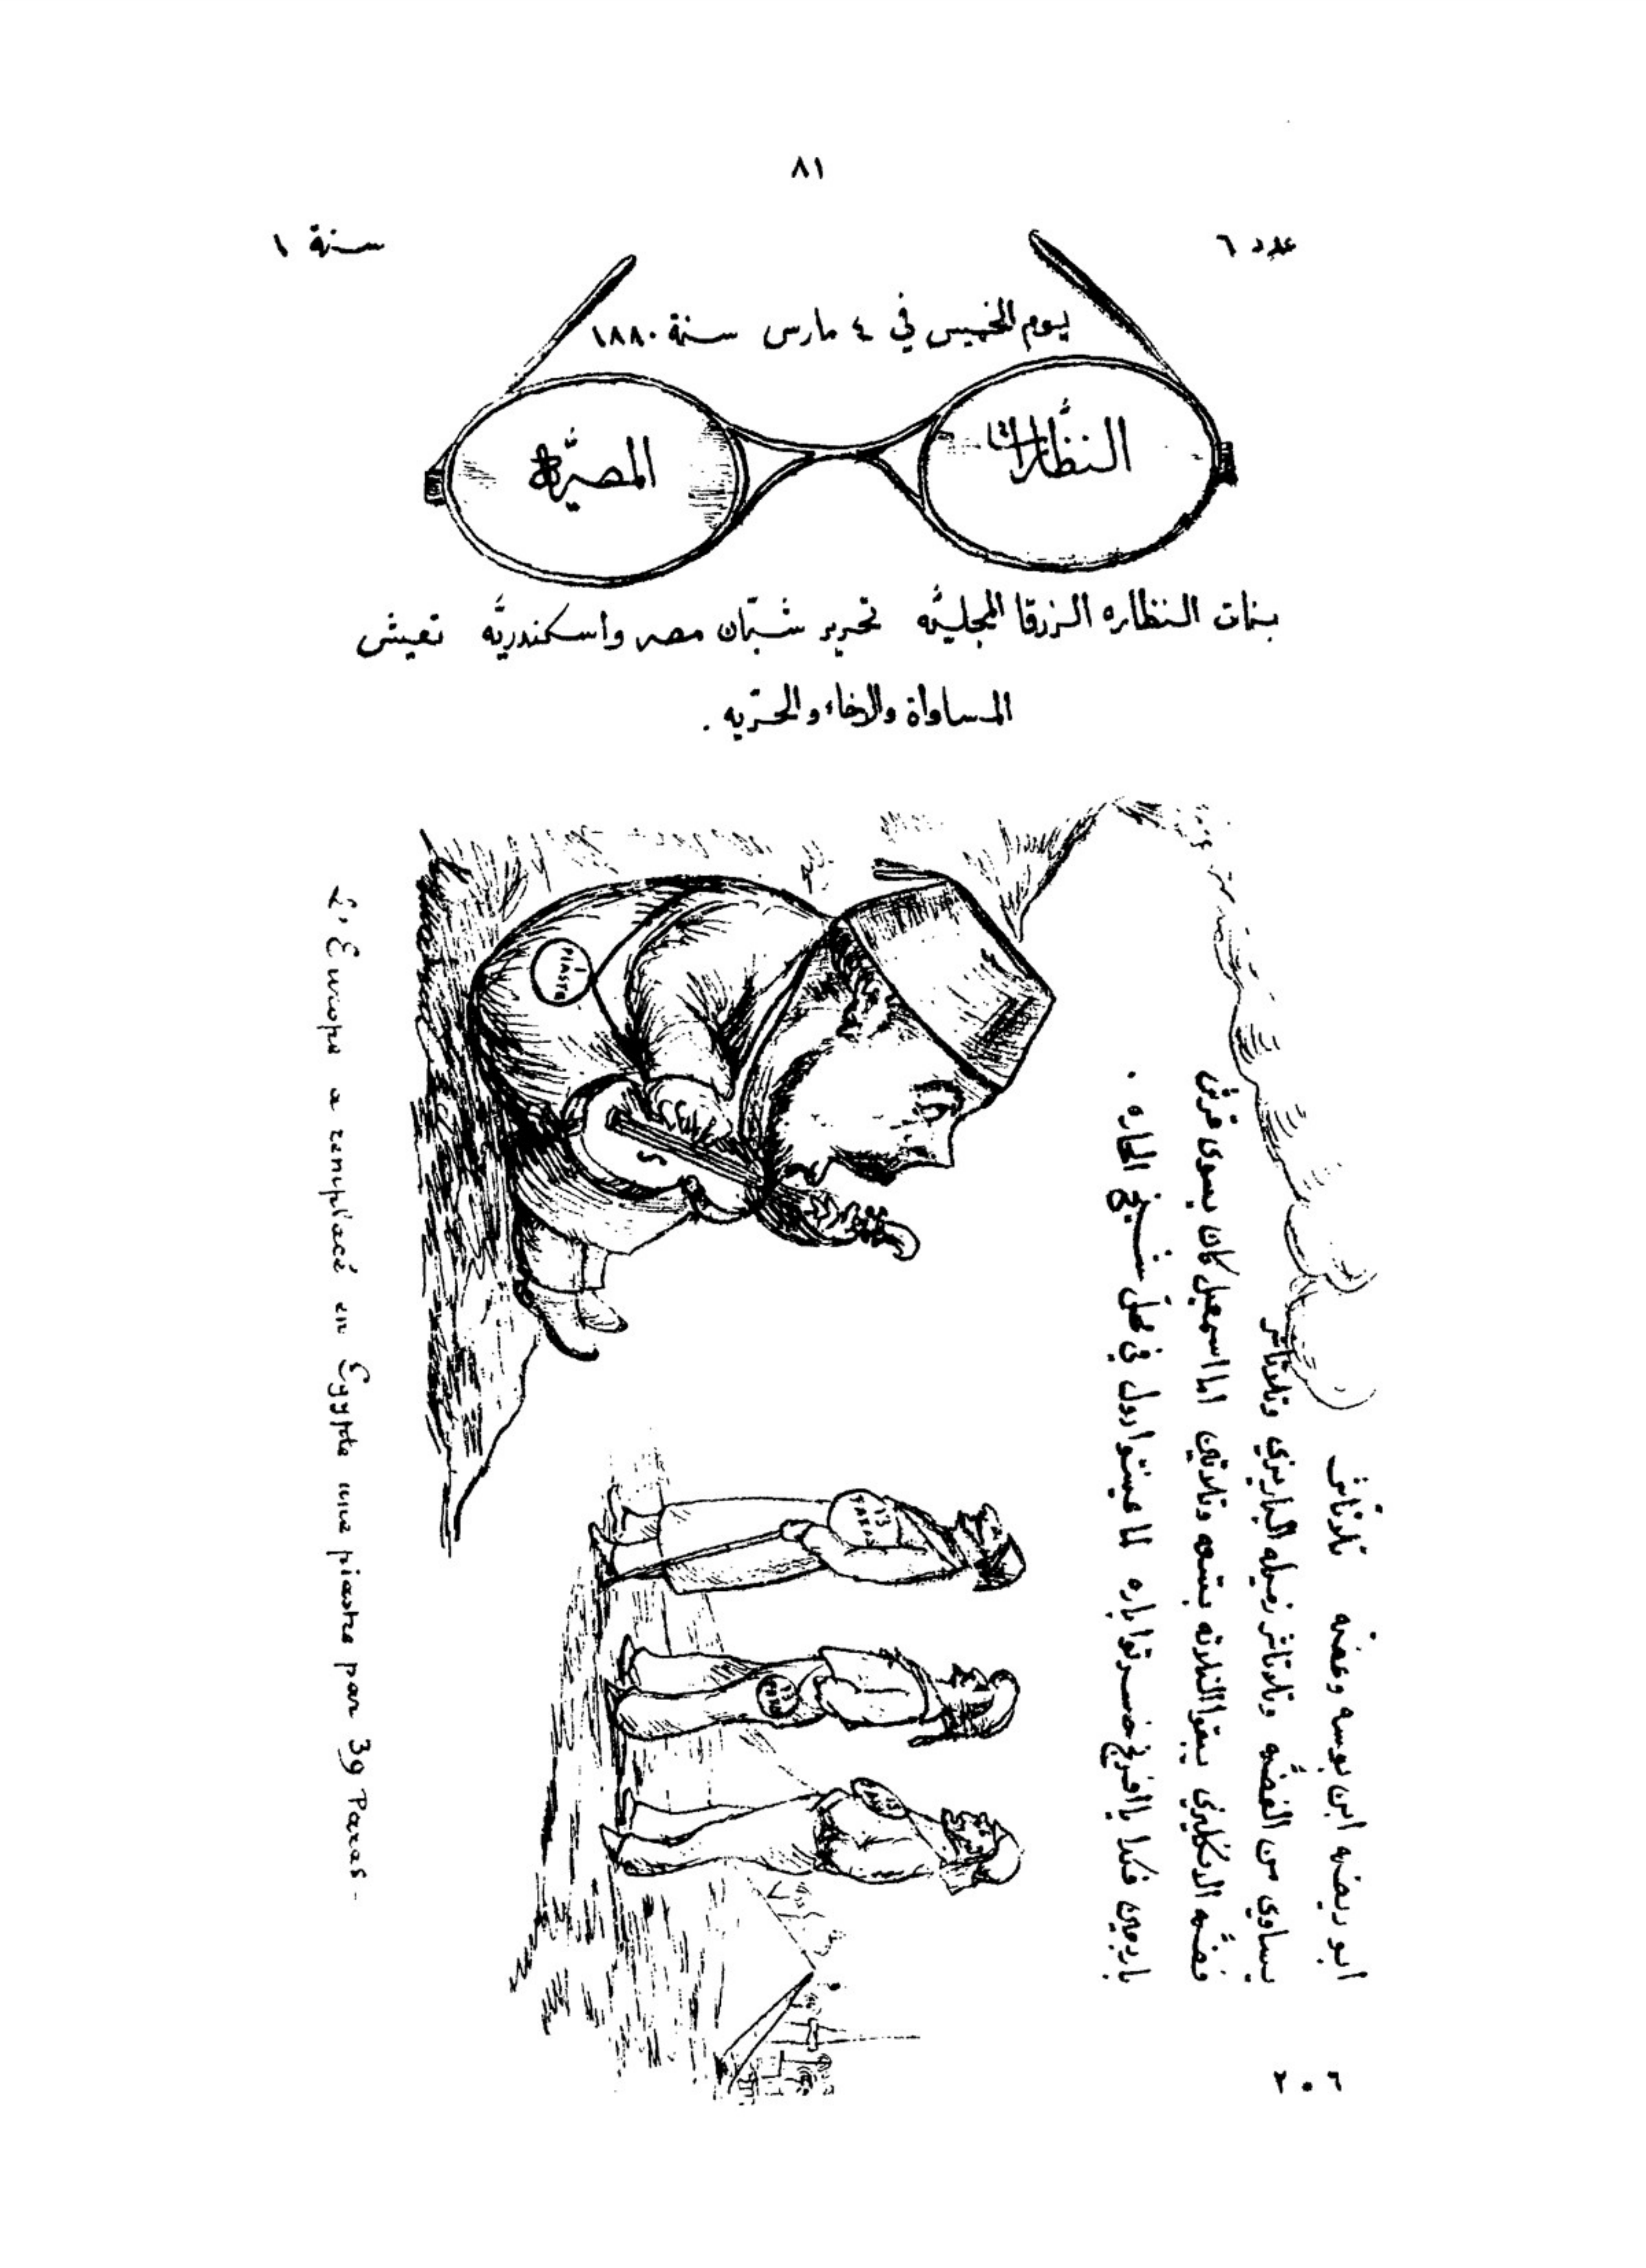 ٨١
عدد ٦
سنة ١
يوم الخميس في ٤ مارس سنة ١٨٨٠
النظّارات
المصريّة
بنات النظاره الزرقا المجليّه تحرير شبّان مصر واسكندريّه تعيش
المساواة والاخاء والحرّيه .
ابو ريضه ابن بوسه وعضّه
يساوي من الفضّه وتلاتاشر زميله الباريزي وتلاتاشر
فضّه الانكليزي يبقوا التلاته بتسعه وتلاتين اما اسمعيل كان يسوى قرش
باربعين فكدا يا افرنج خسرتوا باره لما عينتوا دول في محل شيخ الحاره .
L'Europe a remplacé en Egypte une piastre par 39 Paras -
1 PIASTRE
13 PARAS
13 PARAS
٢٠٦